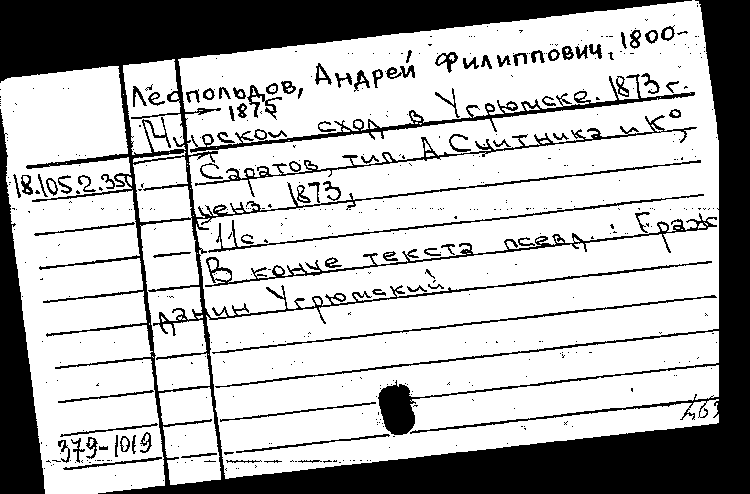 Леопольдов, Андрей Филиппович, 1800-
1875
Мирской сход в Угрюмске. 1873 г.
Саратов, тип. А. Сщитника и К°,
18.105.2.350.
ценз. 1873,
11с.
В конце текста псевд.: Граж
данин Угрюмский.
379-1019
463